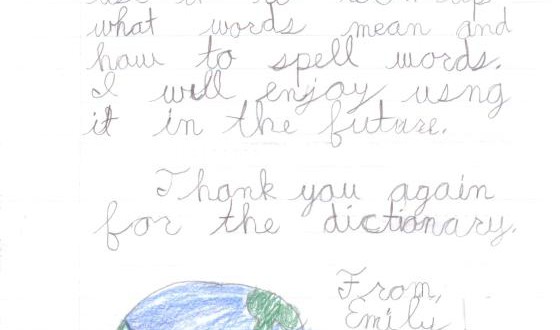 what words mean and
how to spell words.
I will enjoy usng
it in the future.
Thank you again
for the dictionary.
From,
Emily